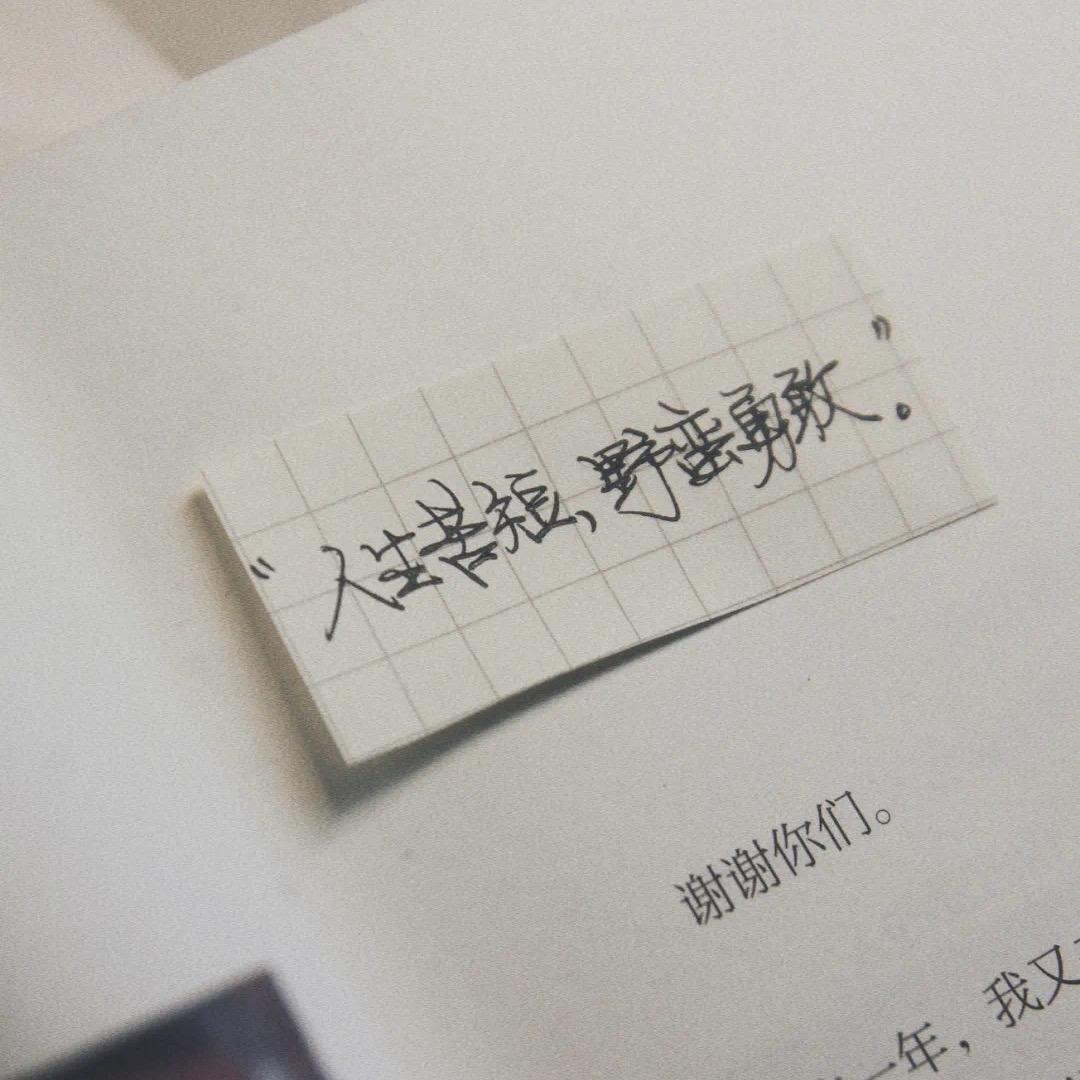 “人生苦短、野蛮勇敢。”
谢谢你们。
一年，我又